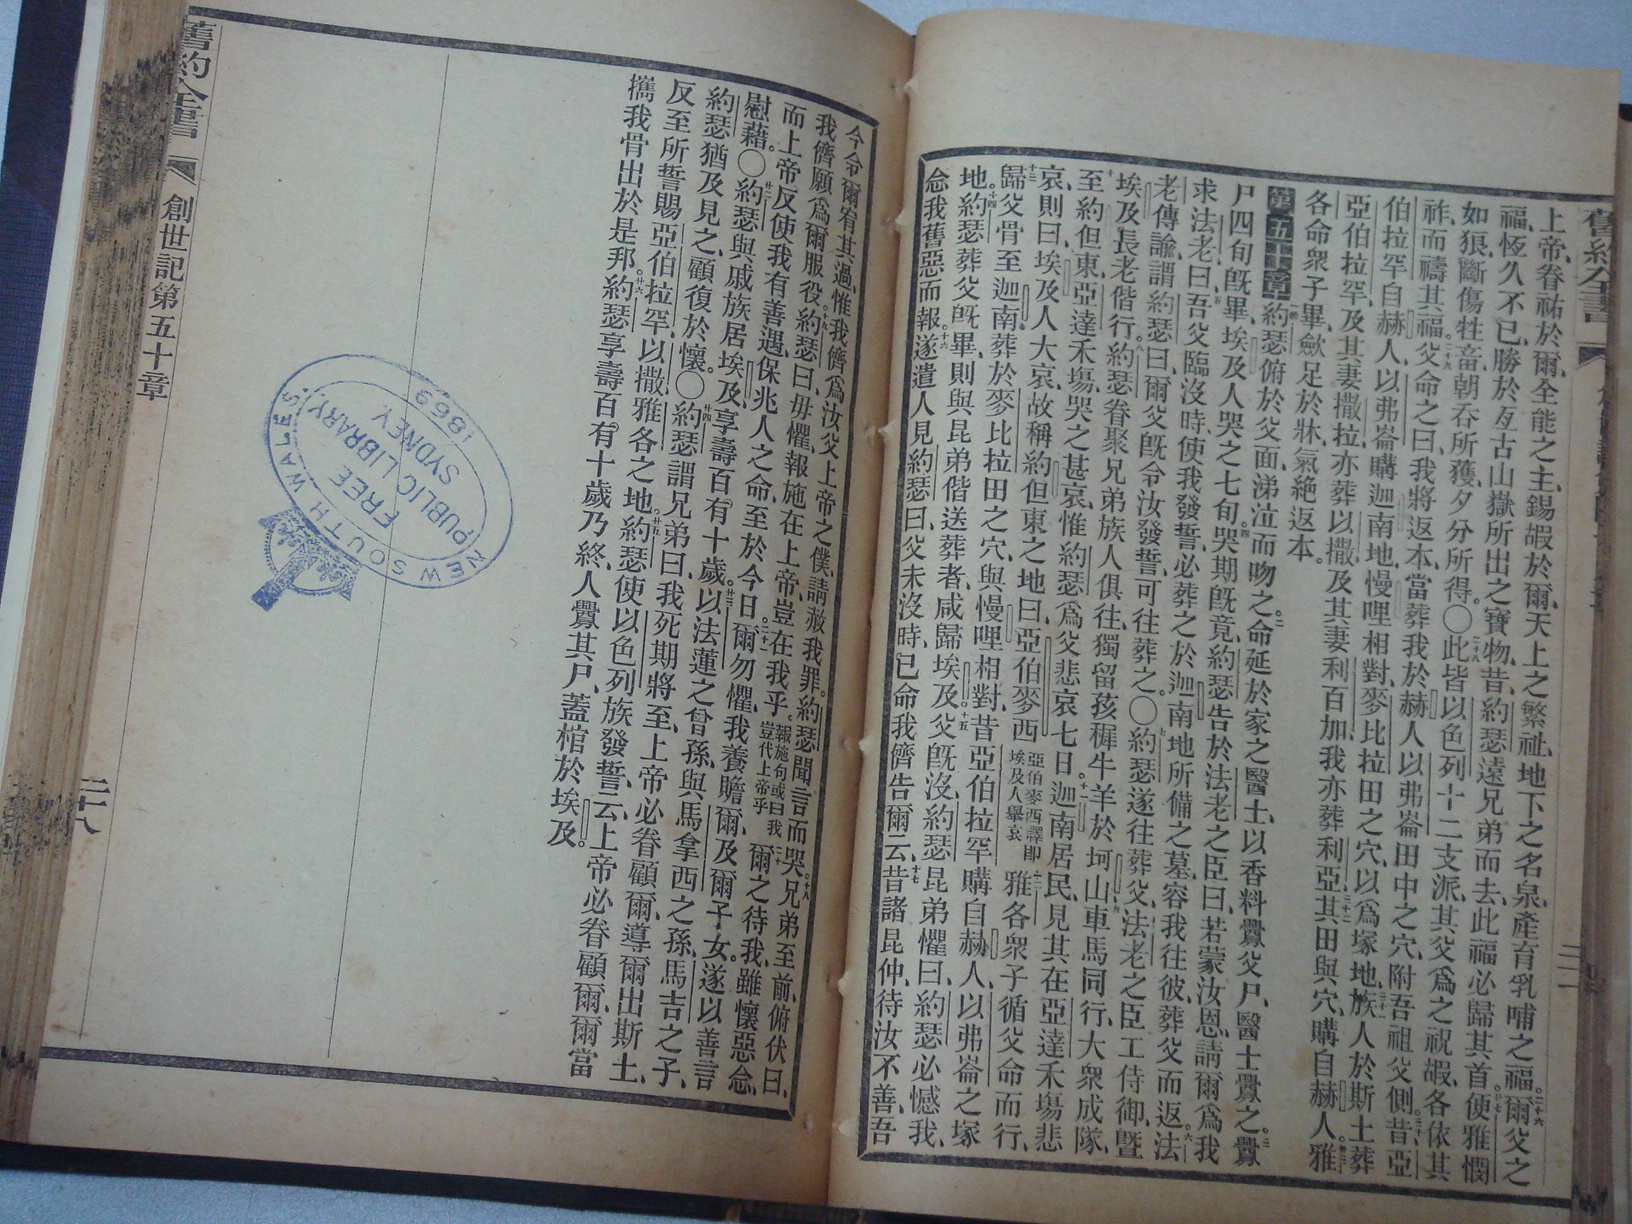 上帝、眷祐於爾、全能之主、錫嘏於爾、天上之繁祉、地下之名泉、產育乳哺之福。二十六爾父之
福、恆久不已、勝於亙古山嶽所出之寶物、昔約瑟遠兄弟而去、此福必歸其首。廿七便雅憫
如狼、斷傷牲畜、朝吞所獲、夕分所得。〇二十八此皆以色列十二支派、其父爲之祝嘏、各依其
祚、而禱其福。二十九父命之曰、我將返本、當葬我於赫人以弗崙田中之穴、附吾祖父側。三十昔亞
伯拉罕自赫人以弗崙購迦南地、慢哩相對、麥比拉田之穴、以爲塚地。三十一族人於斯土葬
亞伯拉罕、及其妻撒拉、亦葬以撒、及其妻利百加、我亦葬利亞。三十二其田與穴、購自赫人。三十三雅
各命衆子畢、歛足於牀、氣絕返本。
第五十章 一約瑟俯於父面、涕泣而吻之。二命延於家之醫士、以香料釁父尸、醫士釁之。三釁
尸四旬旣畢、埃及人哭之七旬。四哭期旣竟、約瑟告於法老之臣曰、若蒙汝恩、請爾爲我
求法老曰、五吾父臨沒時、使我發誓、必葬之於迦南地所備之墓、容我往彼、葬父而返。六法
老傳諭、謂約瑟曰、爾父旣令汝發誓、可往葬之。〇七約瑟遂往葬父、法老之臣工侍御、曁
埃及長老偕行、八約瑟眷聚、兄弟族人俱往、獨留孩穉牛羊於坷山、九車馬同行、大衆成隊、
十至約但東、亞達禾塲、哭之甚哀、惟約瑟爲父悲哀七日。十一迦南居民、見其在亞達禾塲悲
哀、則曰、埃及人大哀、故稱約但東之地曰、亞伯麥西亞伯麥西譯卽埃及人舉哀十二雅各衆子循父命而行、
十三歸父骨至迦南、葬於麥比拉田之穴、與慢哩相對、昔亞伯拉罕購自赫人以弗崙之塚
地。十四約瑟葬父旣畢、則與昆弟偕送葬者、咸歸埃及。十五父旣沒、約瑟昆弟懼曰、約瑟必憾我、
念我舊惡而報、十六遂遣人見約瑟曰、父未沒時、已命我儕告爾云、十七昔諸昆仲、待汝不善、吾
今令爾宥其過、惟我儕爲汝父上帝之僕、請赦我罪。約瑟聞言而哭。十八兄弟至前、俯伏曰、
我儕願爲爾服役。十九約瑟曰、毋懼、報施在上帝、豈在我乎。報施句或曰我豈代上帝乎二十爾之待我、雖懷惡念、
而上帝反使我有善遇、保兆人之命、至於今日。二十一爾勿懼、我養贍爾、及爾子女。遂以善言
慰藉。〇廿二約瑟與戚族居埃及、享壽百有十歲。廿三以法蓮之曾孫、與馬拿西之孫、馬吉之子、
約瑟猶及見之、顧復於懷。〇廿四約瑟謂兄弟曰、我死期將至、上帝必眷顧爾、導爾出斯土、
反至所誓賜亞伯拉罕、以撒、雅各之地。廿五約瑟使以色列族發誓、云、上帝必眷顧爾、爾當
攜我骨出於是邦。廿六約瑟享壽百有十歲乃終、人釁其尸、蓋棺於埃及。
舊約全書
創世記第五十章
二十八
舊約全書
NEW SOUTH WALES.
FREE
PUBLIC LIBRARY,
SYDNEY
1869